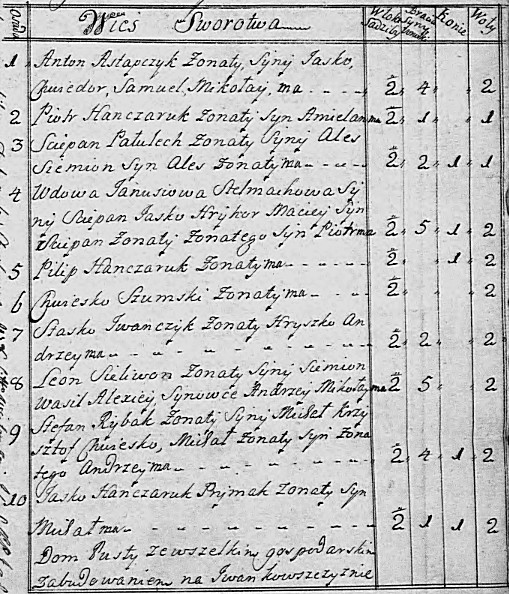 Wieś Sworotwa
Konie Woły
1 Anton Astapczyk Zonaty, Synj Jasko,
Chwedor, Samuel, Mikołay, ma 2 4 2
2 Piotr Hanczaruk Zonaty Syn Amielan ma 2 1 1 2
3 Sciepan Patulech Zonaty Synj Ales
Siemion Syn Ales Zonaty ma 2 2 1 1
4 Wdowa Janusiowa Stelmachowa Sy
nj Sciepan Jasko Hryhor Maciej Syn
Sciepan Zonaty Zonatego Syn Piotr ma 2 5 1 2
5 Pilip Hanczaruk Zonaty ma 2 1 2
6 Chwiesko Szumski Zonaty ma 2 2
7 Stasko Iwanczyk Zonaty Hryszko An
drzey ma 2 2 2
8 Leon Sieliwon Zonaty Synj Siemion
Wasil Alexiey Synowce Andrzey Mikołay ma 2 5 2
9 Stefan Rybak Zonaty Synj Michał Krzy
sztof Chwiesko, Michał Zonaty Syn Zona
tego Andrzey ma 2 4 1 2
10 Jasko Hanczaruk Prjmak Zonaty Syn
Michał ma 2 1 1 2
Dom Pusty ze wszelkim gospodarskim
Zabudowaniem na Iwankowszczyznie